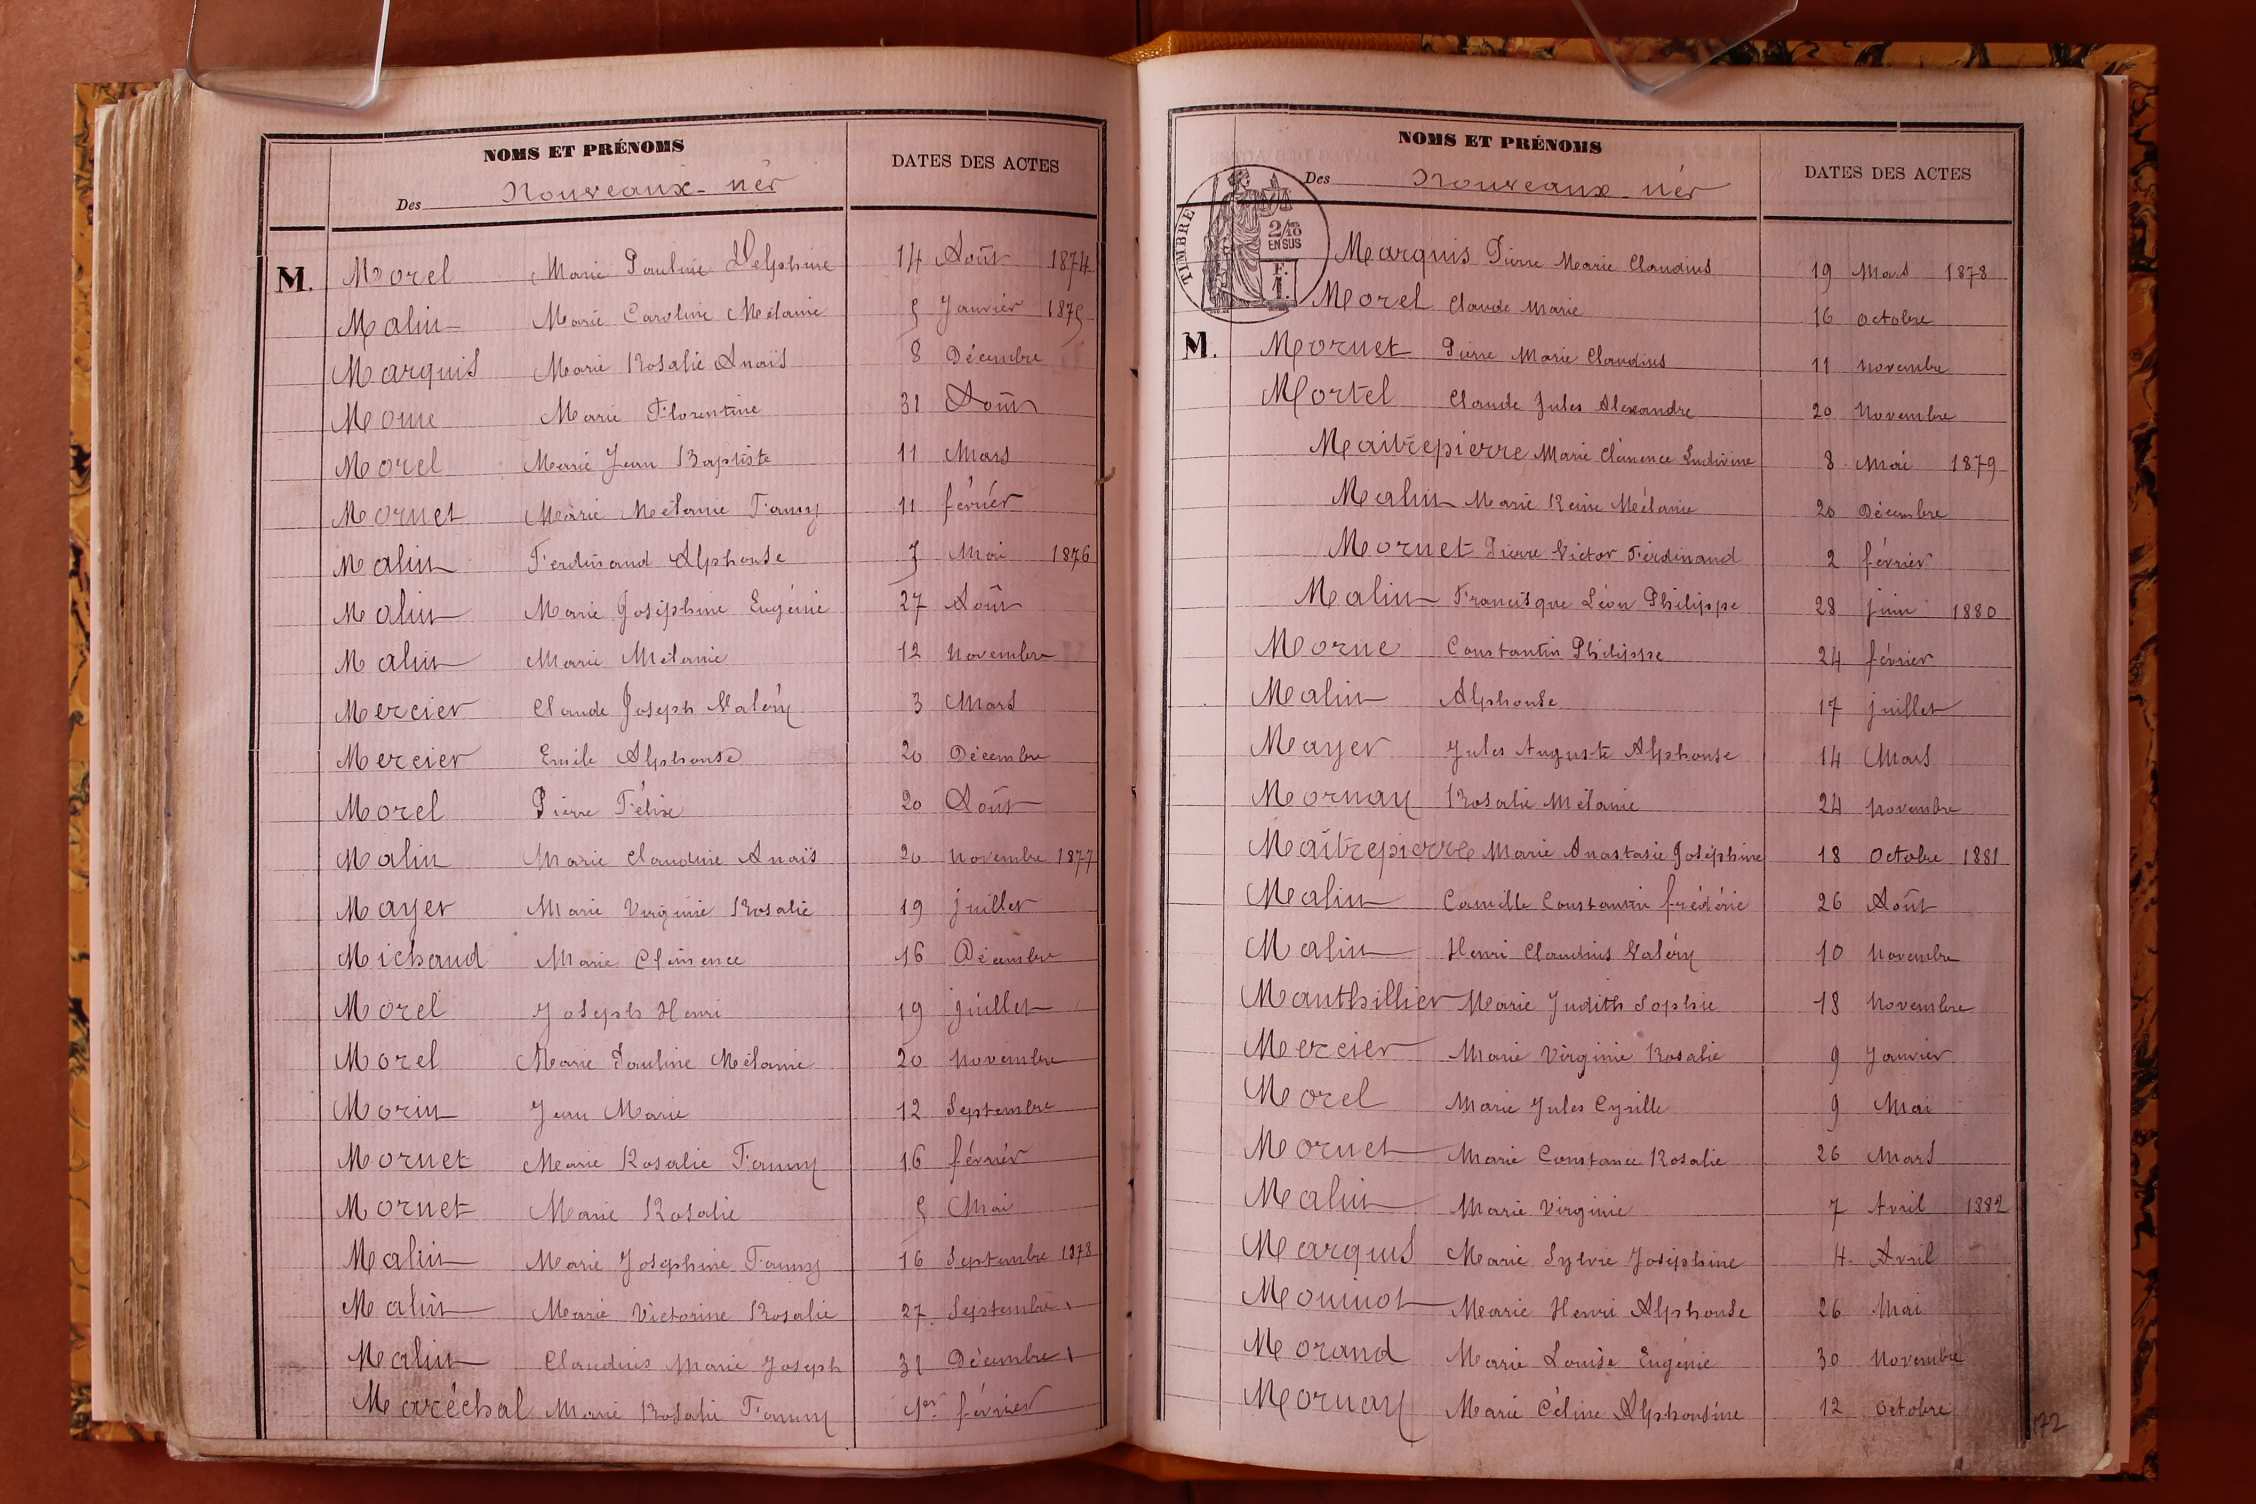 NOMS ET PRÉNOMS
DATES DES ACTES
Des Nouveaux-nés
M. Morel Marie Pauline Delphine 14 Août 1874
Malin Marie Caroline Mélanie 5 Janvier 1875
Marquis Marie Rosalie Anaïs 8 Décembre
Morne Marie Florentine 31 Août
Morel Marie Jean Baptiste 11 Mars
Mornet Marie Mélanie Fanny 11 février
Malin Ferdinand Alphonse 7 Mai 1876
Malin Marie Joséphine Eugénie 27 Août
Malin Marie Mélanie 12 Novembre
Mercier Claude Joseph Valéry 3 Mars
Mercier Emile Alphonse 20 Décembre
Morel Pierre Félix 20 Août
Malin Marie Claudine Anaïs 20 Novembre 1877
Mayer Marie Virginie Rosalie 19 juillet
Michaud Marie Clémence 16 Décembre
Morel Joseph Henri 19 juillet
Morel Marie Pauline Mélanie 20 Novembre
Morin Jean Marie 12 Septembre
Mornet Marie Rosalie Fanny 16 février
Mornet Marie Rosalie 5 Mai
Malin Marie Joséphine Fanny 16 Septembre 1878
Malin Marie Victorine Rosalie 27 Septembre
Malin Claudius Marie Joseph 31 Décembre
Maréchal Marie Rosalie Fanny 1er février
NOMS ET PRÉNOMS
DATES DES ACTES
Des Nouveaux nés
TIMBRE
2/10
EN SUS
F.
1.
Marquis Pierre Marie Claudius 19 Mars 1878
Morel Claude Marie 16 Octobre
M. Mornet Pierre Marie Claudius 11 Novembre
Mortel Claude Jules Alexandre 20 Novembre
Maitrepierre Marie Clémence Ludivine 8 Mai 1879
Malin Marie Reine Mélanie 20 Décembre
Mornet Pierre Victor Ferdinand 2 février
Malin Francisque Léon Philippe 28 juin 1880
Morne Constantin Philippe 24 février
Malin Alphonse 17 juillet
Mayer Jules Auguste Alphonse 14 Mars
Mornay Rosalie Mélanie 24 Novembre
Maîtrepierre Marie Anastasie Joséphine 18 Octobre 1881
Malin Camille Constantin frédéric 26 Août
Malin Henri Claudius Valéry 10 Novembre
Manthillier Marie Judith Sophie 18 Novembre
Mercier Marie Virginie Rosalie 9 Janvier
Morel Marie Jules Cyrille 9 Mai
Mornet Marie Constance Rosalie 26 Mars
Malin Marie Virginie 7 Avril 1882
Marquis Marie Sylvie Joséphine 4 Avril
Mouinot Marie Henri Alphonse 26 Mai
Morand Marie Louise Eugénie 30 Novembre
Mornay Marie Céline Alphonsine 12 Octobre
172